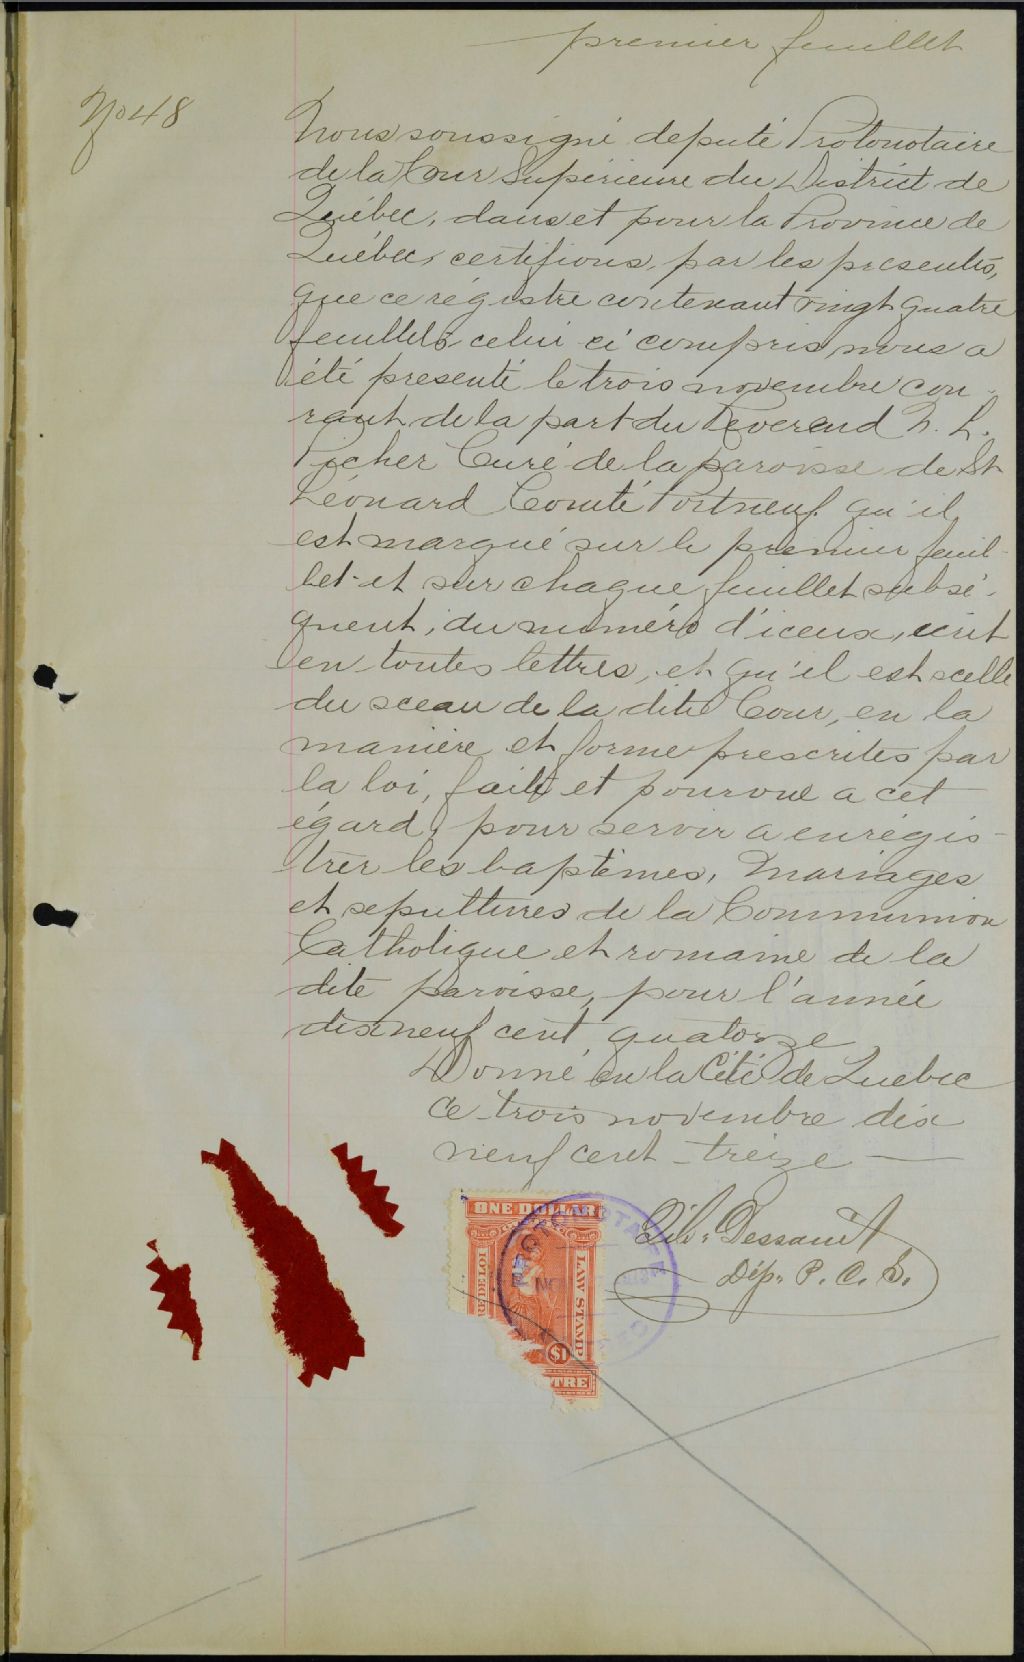 premier feuillet
No 48
Nous soussigné député Protonotaire
de la Cour Supérieure du District de
Québec, dans et pour la Province de
Québec, certifions, par les presentes,
que ce régistre contenant vingt quatre
feuillets, celui ci compris, nous a
été presenté le trois novembre cou-
rant de la part du Reverend N. L.
Picher Curé de la paroisse de St
Léonard Comté Portneuf qu'il
est marqué sur le premier feuil-
let et sur chaque feuillet subsé-
quent, du numéro d'iceux, écrit
en toutes lettres, et qu'il est scellé
du sceau de la dite Cour, en la
manière et forme prescrites par
la loi, faite et pourvue a cet
égard, pour servir a enrégis-
trer les baptêmes, Mariages
et sepultures de la Communion
Catholique et romaine de la
dite paroisse, pour l'année
dix neuf cent quatorze
Donné en la Cité de Quebec
ce trois novembre dix
neuf cent treize
ONE DOLLAR
LAW STAMP
RE DE LOI
$1
TRE
PROTONOTAIRE
NOV
Dessault
Dép. P. C. S.